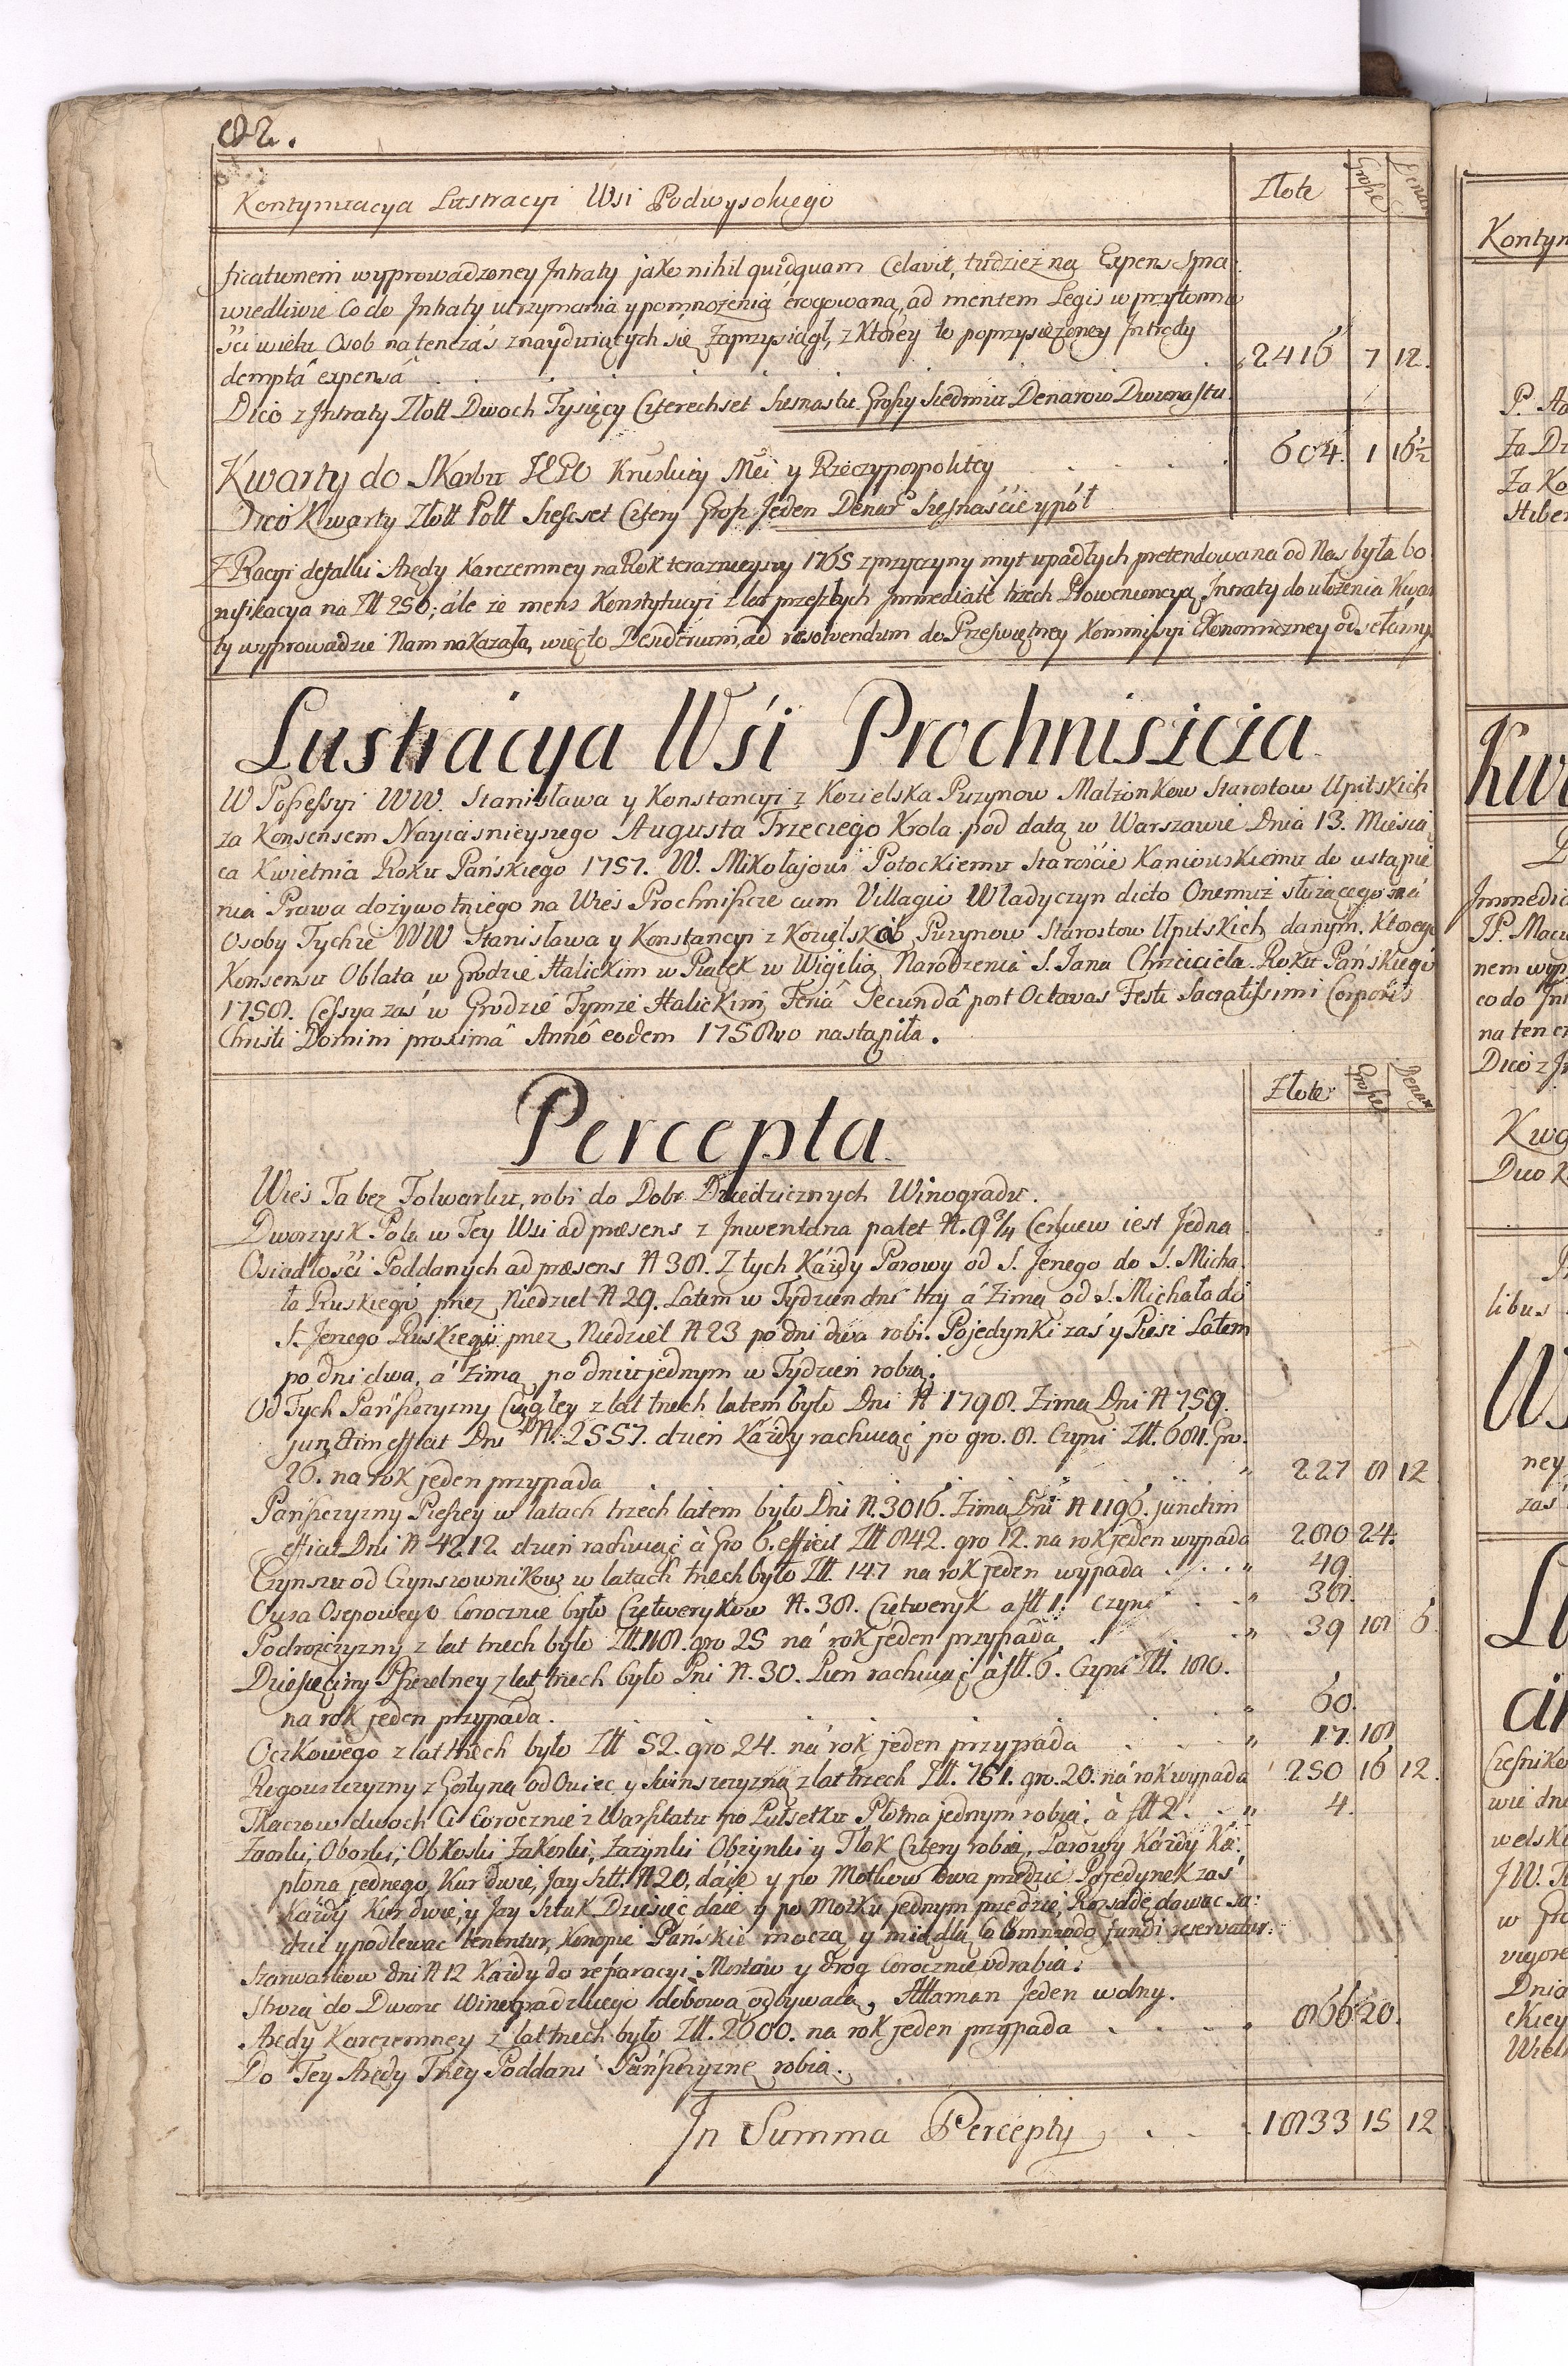 82.
Kontynuacya Lustracyi Wsi Podwysokiego
Złote Grosze Denar
ficatumem wyprowadzoney Intraty jako nihil quidquam Celavit, tudzież na Expens spra
wiedliwie Co do Intraty utrzymania y pomnożenia erogowaną, ad mentem Legis w przytomno
ści wielu Osob natenczas znayduiących się zaprzysiągł, z ktorey to poprzysiężoney Intraty
demptâ expensâ . . . . . . . . 2416 7 12.
Dico z Intraty Złott Dwoch Tysięcy Czterechset Szesnastu Groszy Siedmiu Denarow Dwunastu
Kwarty do Skarbu JEGO Krolewskiey Mci y Rzeczypospolitey . . . . . 604. 1 16½
Dico Kwarty Złott Poll Szescset Cztery Grosz Jeden Denar Szesnaście y poł
Z Racyi defalki Arędy Karczemney na Rok teraznieyszy 1765 z przyczyny myt upadłych pretendowana od Nas była bo
nifikacya na Złł 250; ale że mens Konstytucyi z lat przeszłych Immediate trzech Prowenencyą Intraty do ułożenia Kwar
ty wyprowadzic Nam nakazała, więc to Desiderium, ad resolvendum do Prześwietney Kommissyi Ekonomiczney odsełamy.
Lustracya Wśi Prochniszcza
W Possessyi WW. Stanisława y Konstancyi z Kozielska Puzynow Małżonkow Starostow Upitskich
za Konsensem Nayiasnieyszego Augusta Trzeciego Krola pod datą w Warszawie Dnia 13. Miesią
ca Kwietnia Roku Pańskiego 1757. W. Mikołajowi Potockiemu Staroście Kaniowskiemu do ustąpie
nia Prawa dożywotniego na Wieś Prochniszcze cum Villagio Władyczyn dicto Onemuż służącego na
Osoby Tychże WW Stanisława y Konstancyi z Kozielska Puzynow Starostow Upitskich danym. Ktorego
Konsensu Oblata w Grodzie Halickim w Piątek w Wigilią Narodzenia S. Jana Chrzciciela Roku Pańskiego
1758. Cessya zaś w Grodzie Tymże Halickim Feriâ Secundâ post Octavas Festi Sacratissimi Corporis
Christi Domini proximâ Annô eodem 1758vo nastąpiła.
Percepta
Złote Grosze Denar
Wieś Ta bez Folwarku, robi do Dobr Dziedzicznych Winogradu.
Dworzysk Pola w Tey Wsi ad præsens z Inwentarza patet N. 9¾ Cerkiew iest Jedna
Osiadłości Poddanych ad præsens N 38. Z tych Każdy Parowy od S. Jerzego do S. Micha
ła Ruskiego przez Niedziel N 29. Latem w Tydzien dni trzy a Zimą od S. Michała do
S. Jerzego Ruskiego przez Niedziel N 23 po dni dwa robi. Pojedynki zaś y Piesi Latem
po dni dwa, a Zimą po dniu jednym w Tydzien robią.
Od Tych Pańszczyzny Ciągłey z lat trzech latem było Dni N 1798. Zimą Dni N 759.
junctim efficit Dni N. 2557. dzień Każdy rachuiąc po gro. 8. Czyni Złł. 681. Gro.
26. na rok jeden przypada 227 8 12
Pańszczyzny Pieszey w latach trzech latem było Dni N. 3016. Zimą Dni N 1196. junctim
efficit Dni N 4212 dzień rachuiąc â Gro 6. efficit Złł 842. gro 12. na rok jeden wypada 280 24.
Czynszu od Czynszownikow w latach trzech było Złł. 147 na rok jeden wypada . . . 49.
Owsa Osepowego Corocznie było Czetwerykow N. 38. Czetweryk a złł 1. czyni . . 38.
Podrożczyzny z lat trzech było Złł. 118. gro 25 na rok jeden przypada . . . 39 18 6.
Dziesięciny Pszczelney z lat trzech było Pni N. 30. Pień rachuiąc â złł. 6. Czyni Złł. 180.
na rok jeden przypada . . . . 60.
Oczkowego z lat trzech było Złł 52. gro 24. na rok jeden przypada . . . 17. 18
Rogowszczyzny z Gostyną od Owiec y Swinszczyzną z lat trzech Złł. 751. gro. 20. na rok wypada 250 16 12.
Tkaczow dwoch Ci Corocznie z Warsztatu po Pułsetku Płotna jednym robią: à złł 2. . 4.
Zaorki, Oborki, Obkoski Zakoski, Zażynki Obżynki y Tłok Cztery robią, Parowy Każdy Ka:
płona jednego, Kur dwie, Jay Sztt. N 20, daje y po Motkow dwa przędzie Pojedynek zaś
Każdy Kur dwie, y Jay Sztuk Dziesięć daie y po Motku jednym przędzie, Rozsadę dawac sa:
dzić y podlewac tenentur, Konopie Pańskie moczą y międlą Co Commodo fundi reservatur.
Szarwarkow dni N 12 Każdy do reparacyi Mostow y drog Corocznie odrabia:
Strożą do Dworu Winogradzkiego dobową odbywaią, Attaman Jeden wolny.
Arędy Karczemney z lat trzech było Złł. 2600. na rok jeden przypada . . . . 866 20.
Do Tey Arędy Trzey Poddani Pańszczyznę robią.
In Summa Percepty . . . 1833 15 12